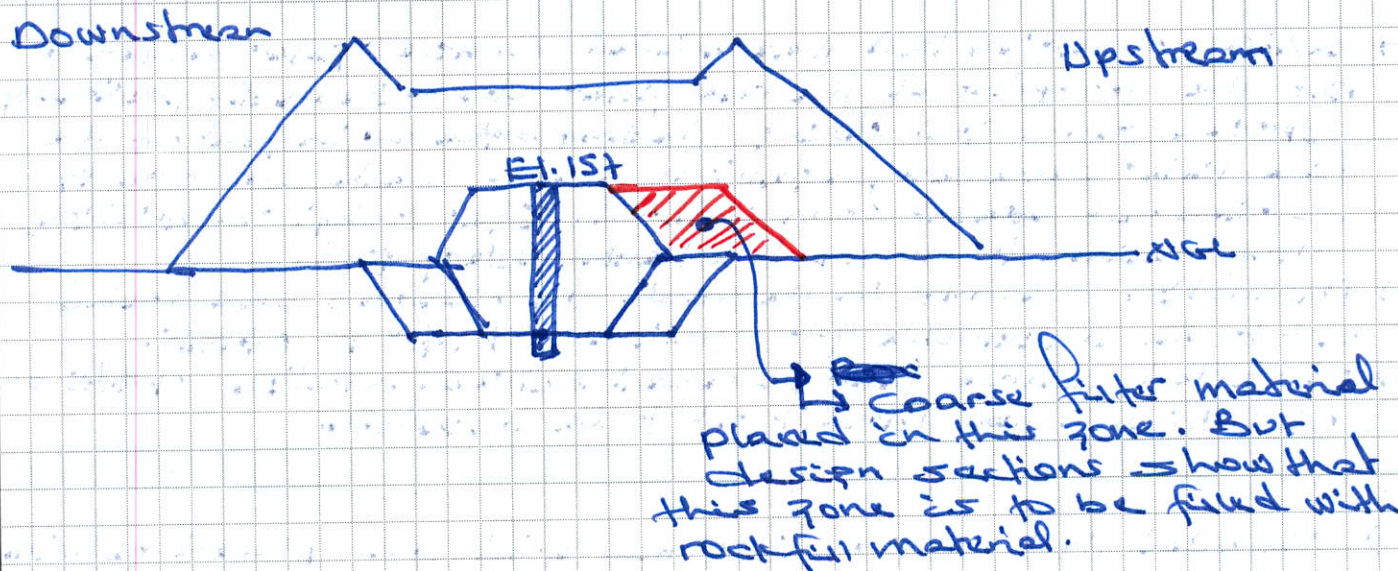 Downstream
Upstream
El. 157
NGL
coarse filter material
placed in this zone. But
design sections show that
this zone is to be filled with
rockfill material.